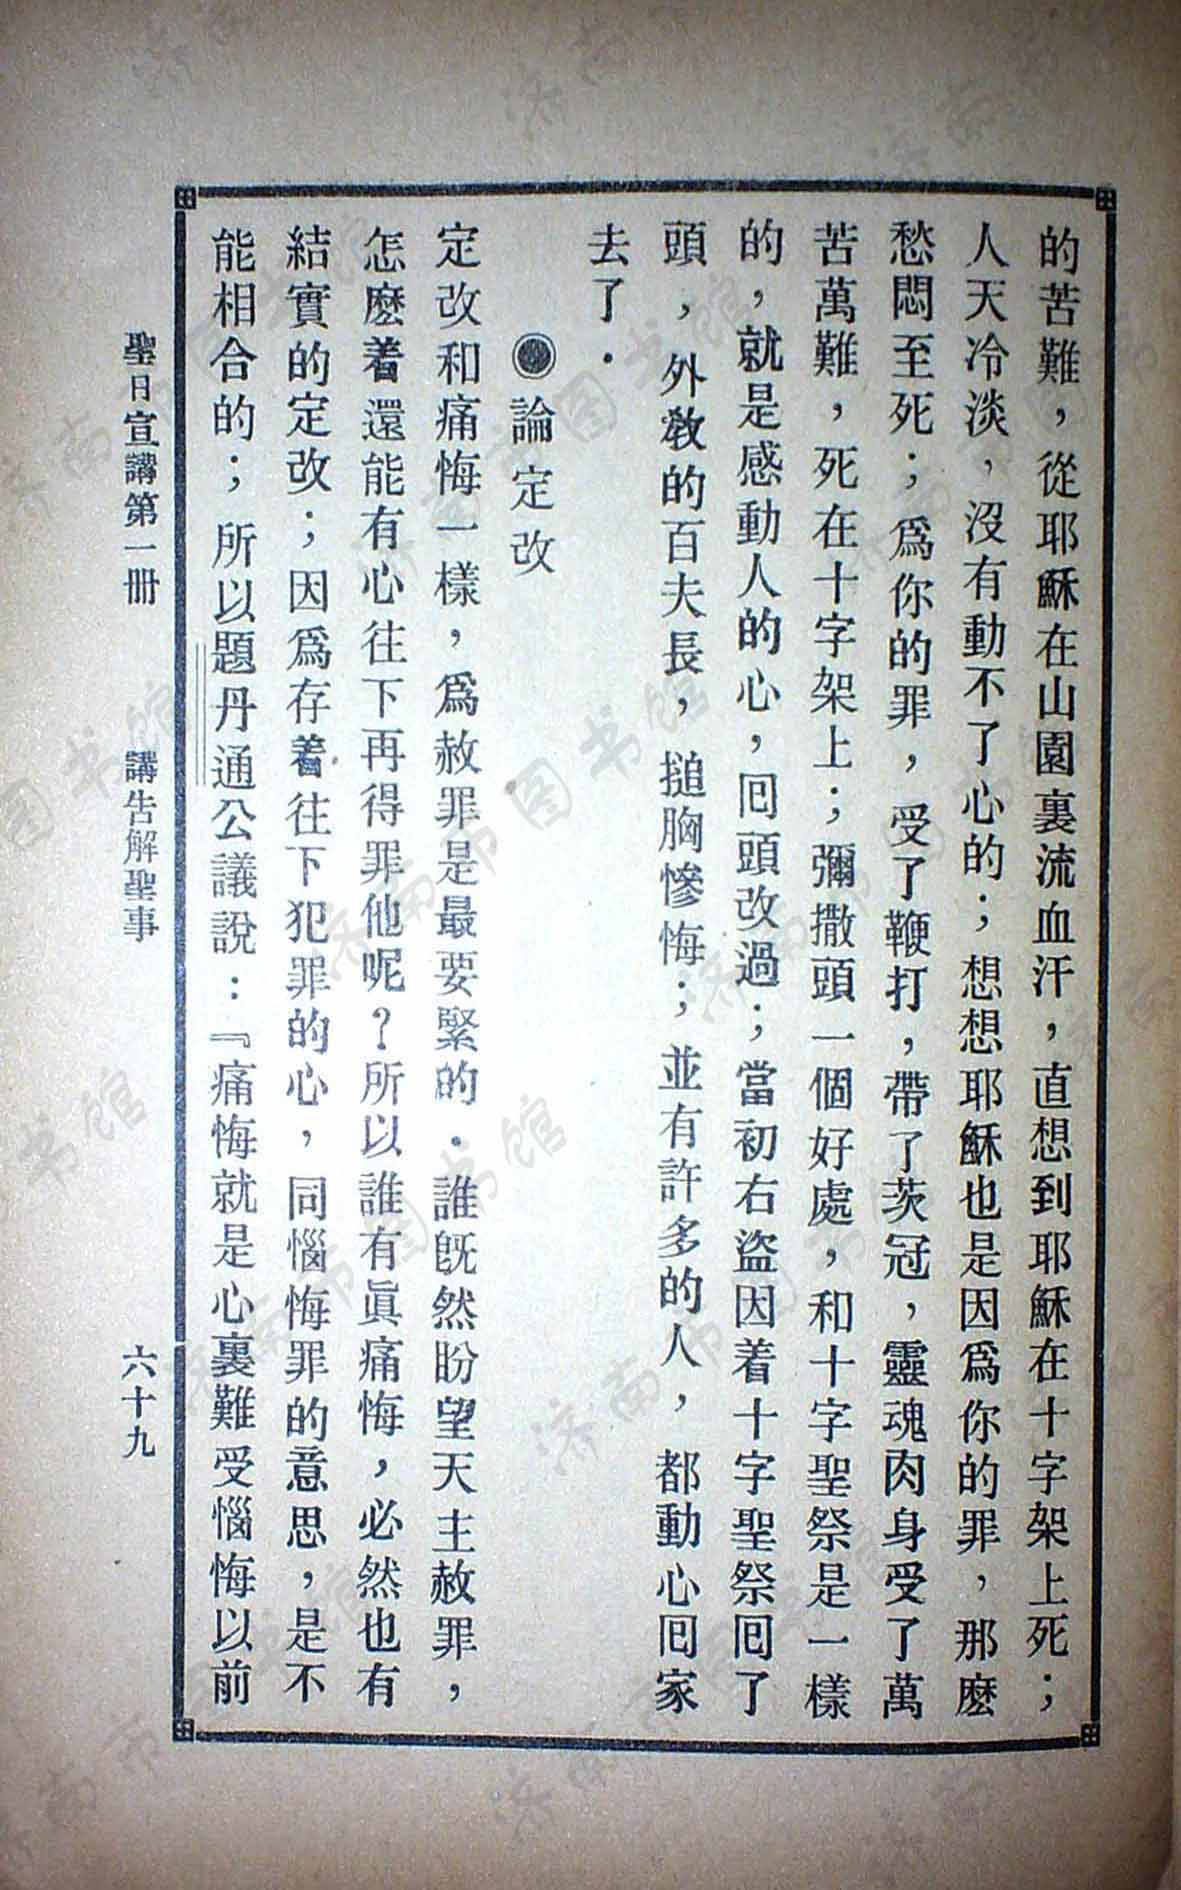 的苦難，從耶穌在山園裏流血汗，直想到耶穌在十字架上死；
人天冷淡，沒有動不了心的；想想耶穌也是因爲你的罪，那麽
愁悶至死；爲你的罪，受了鞭打，帶了茨冠，靈魂肉身受了萬
苦萬難，死在十字架上；彌撒頭一個好處，和十字聖祭是一樣
的，就是感動人的心，囘頭改過；當初右盜因着十字聖祭囘了
頭，外敎的百夫長，搥胸慘悔；並有許多的人，都動心囘家
去了．
◉論定改
定改和痛悔一樣，爲赦罪是最要緊的．誰旣然盼望天主赦罪，
怎麽着還能有心往下再得罪他呢？所以誰有眞痛悔，必然也有
結實的定改；因爲存着往下犯罪的心，同惱悔罪的意思，是不
能相合的；所以題丹通公議說：『痛悔就是心裏難受惱悔以前
聖日宣講第一冊 講告解聖事 六十九
济南市图书馆